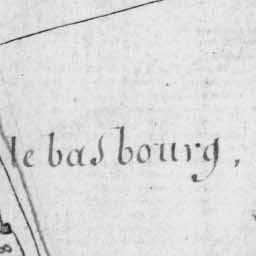 le bas bourg,
8